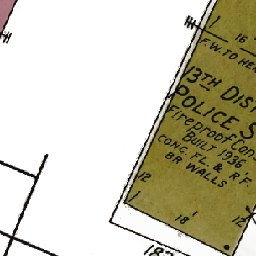 1
16
F.W. TO HE
13TH DIS
POLICE S
Fireproof Con
BUILT 1936
CONC. FL. & R'F.
BR WALLS
12
1
18'
12
182